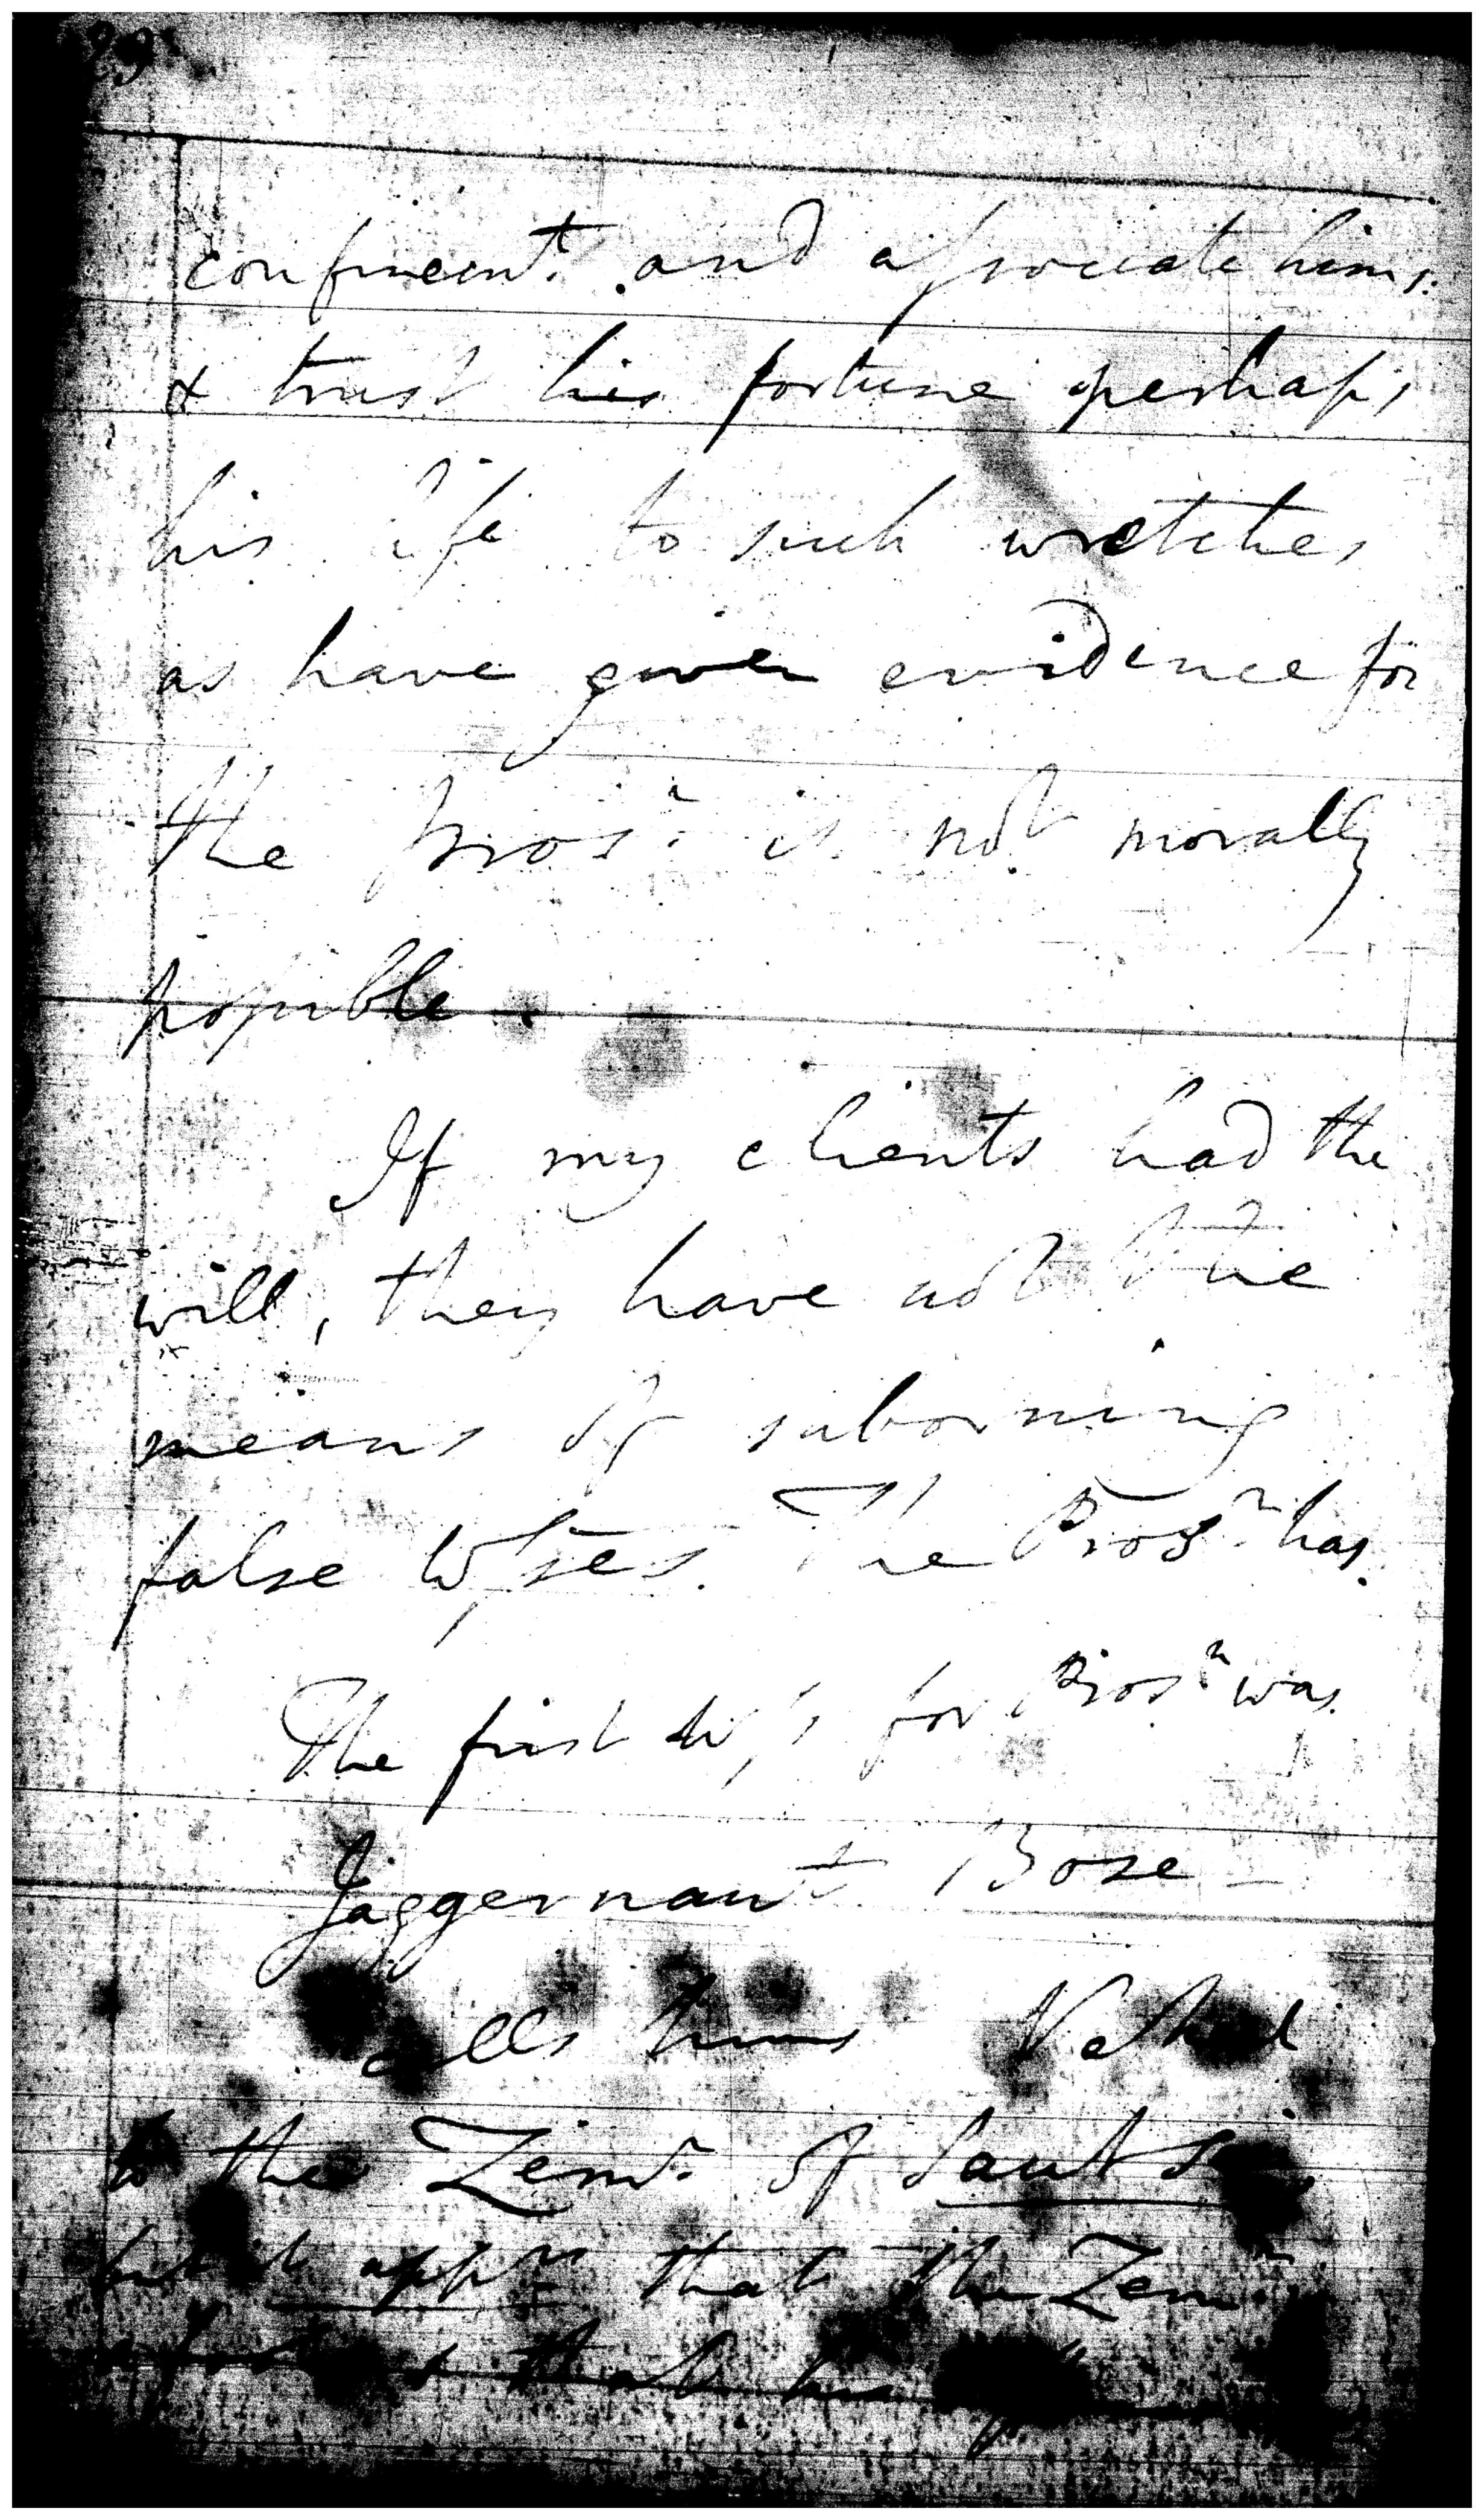 29
confinemt. and associate hims.
& trust his fortune perhaps
his life to such wretches
as have given evidence for
the Prosn. is not morally
possible.
If my clients had the
will, they have not the
means of suborning
false Wsses. The Prosn. has.
The first Ws for Prosn. was
Jaggernaut Bose
calls hims
to the Zemr. of
but it apprs that the Zemr.
that his